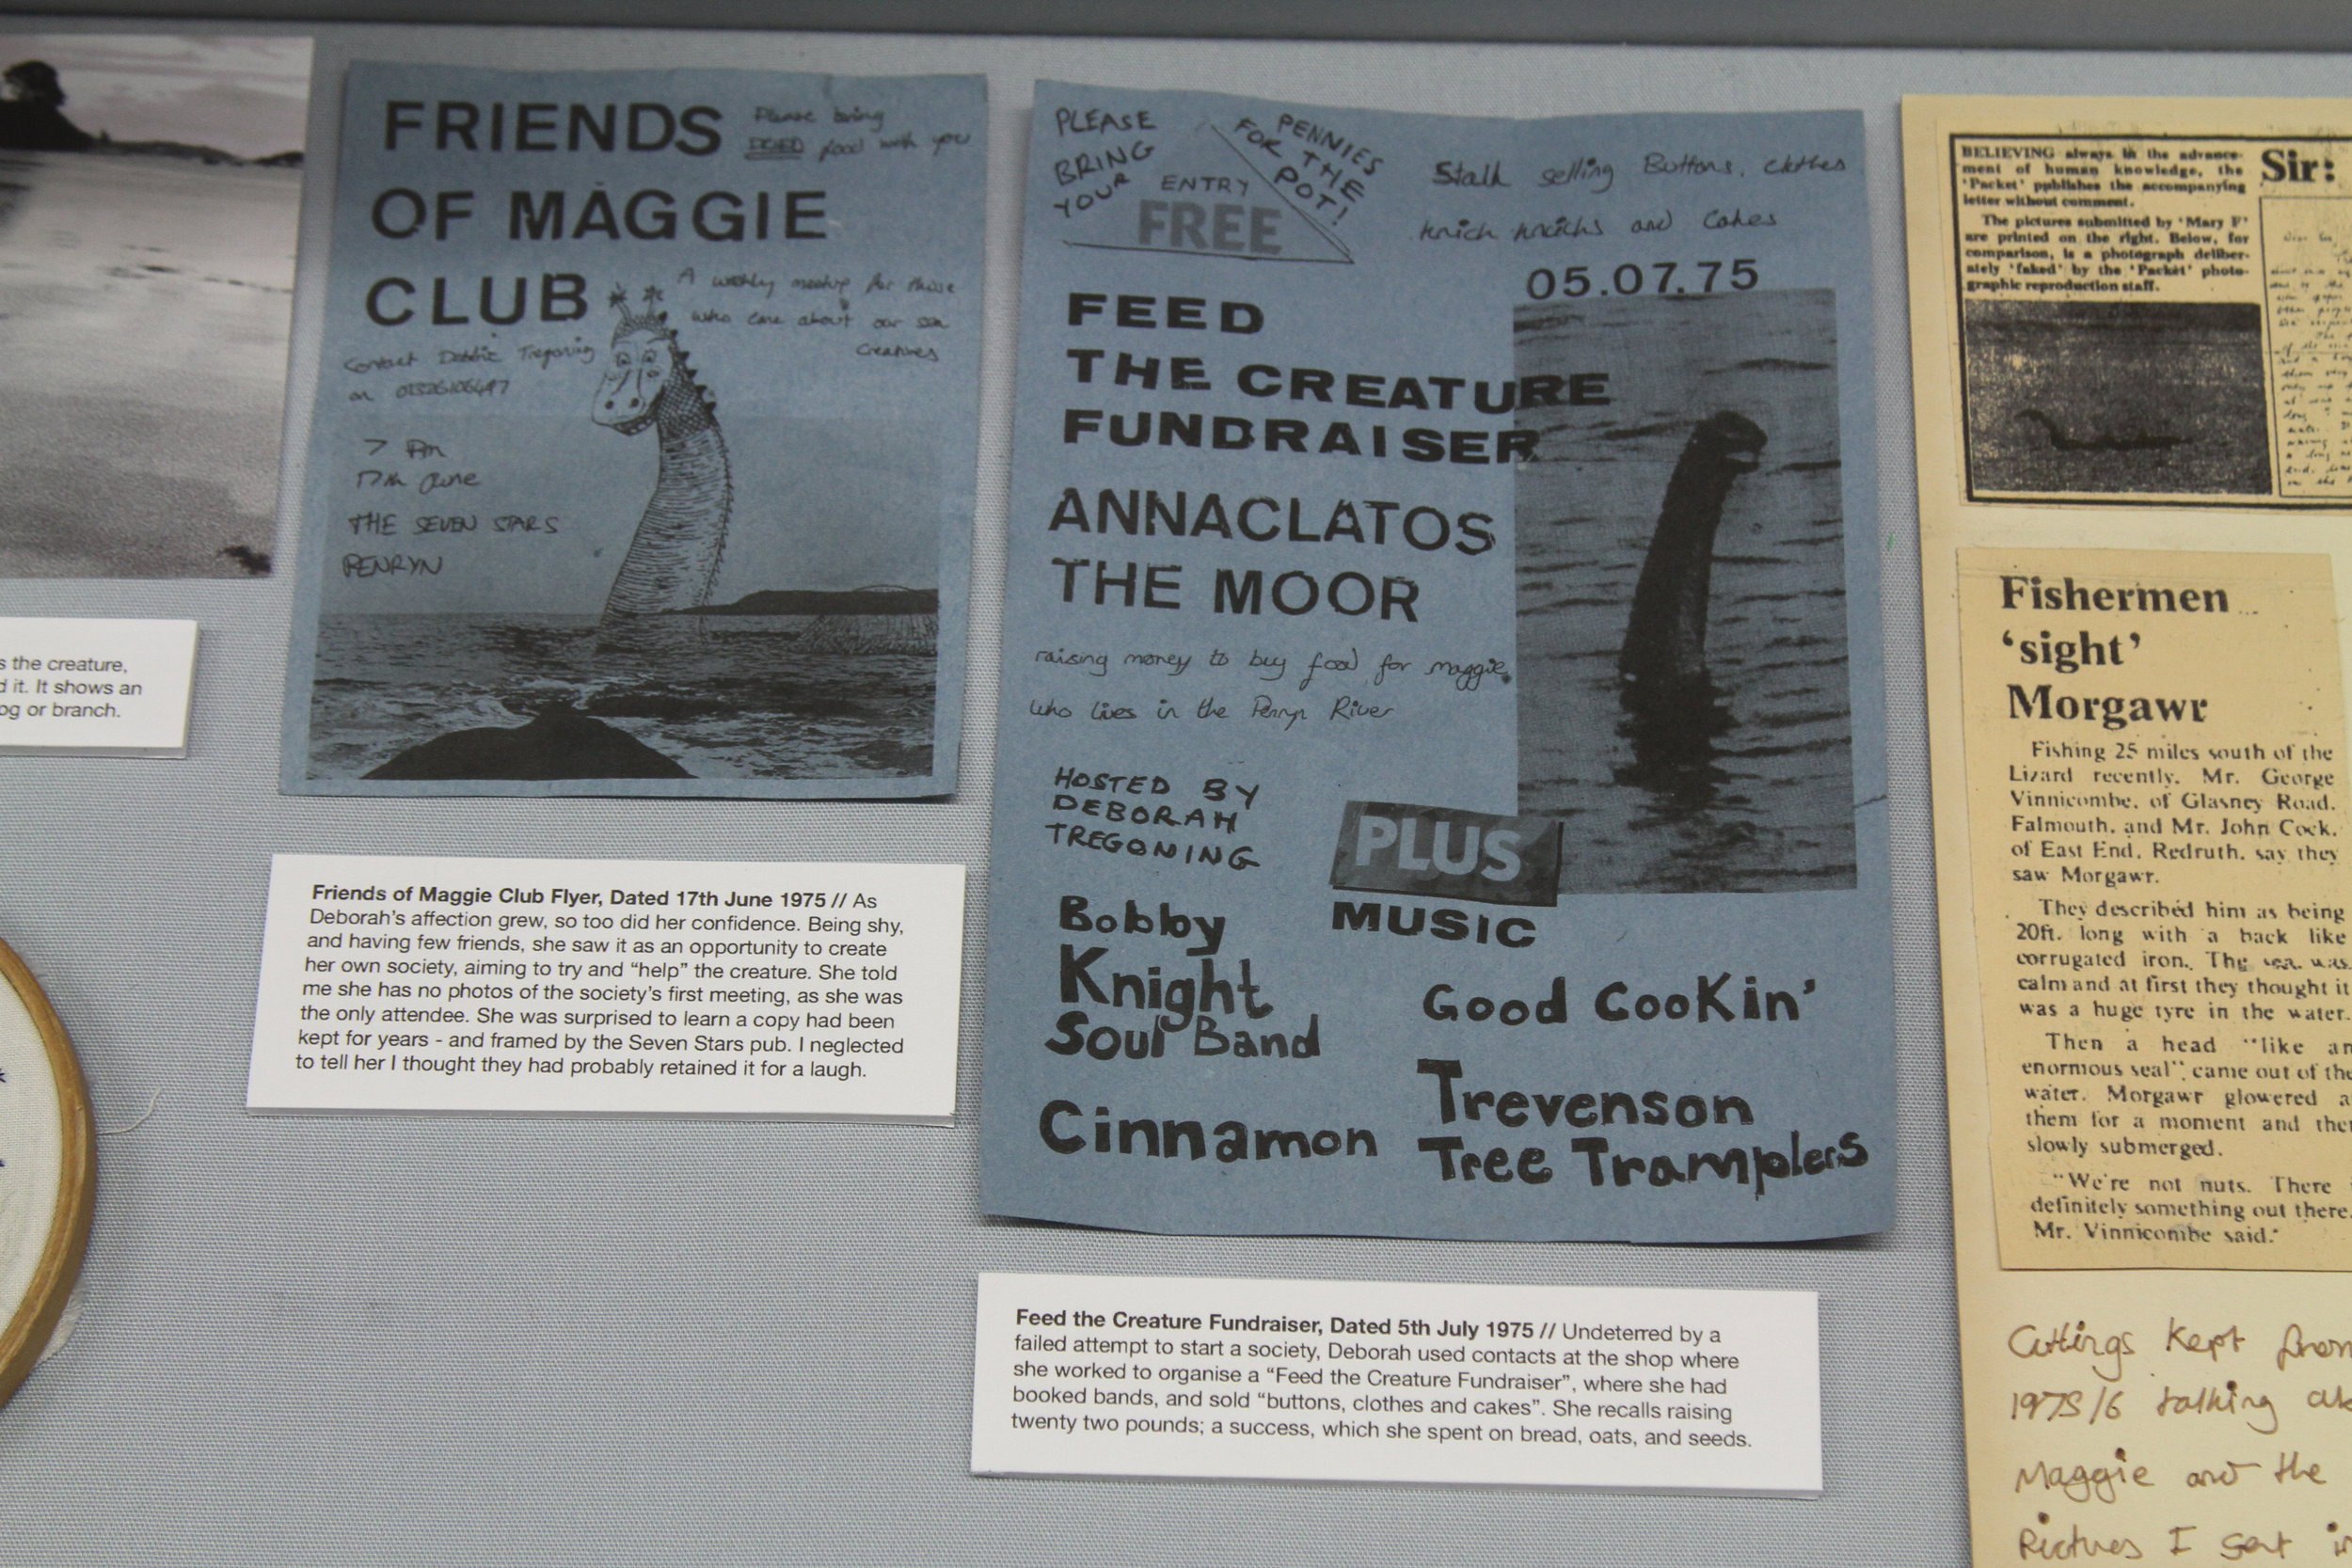 s the creature,
d it. It shows an
og or branch.
FRIENDS
OF MAGGIE
CLUB
Please bring
DRIED food with you
A weekly meetup for those
who care about our sea
creatures
Contact Debbie Tregoning
on
7 PM
17th June
THE SEVEN STARS
PENRYN
Friends of Maggie Club Flyer, Dated 17th June 1975 // As
Deborah's affection grew, so too did her confidence. Being shy,
and having few friends, she saw it as an opportunity to create
her own society, aiming to try and “help” the creature. She told
me she has no photos of the society's first meeting, as she was
the only attendee. She was surprised to learn a copy had been
kept for years - and framed by the Seven Stars pub. I neglected
to tell her I thought they had probably retained it for a laugh.
PLEASE
BRING
YOUR
PENNIES
FOR THE
POT!
ENTRY
FREE
Stall selling Buttons, clothes
knick knacks and Cakes
05.07.75
FEED
THE CREATURE
FUNDRAISER
ANNACLATOS
THE MOOR
raising money to buy food for maggie,
who lives in the Penryn River
HOSTED BY
DEBORAH
TREGONING
PLUS
MUSIC
Bobby
Knight
Soul Band
Cinnamon
Good Cookin'
Trevenson
Tree Tramplers
Feed the Creature Fundraiser, Dated 5th July 1975 // Undeterred by a
failed attempt to start a society, Deborah used contacts at the shop where
she worked to organise a “Feed the Creature Fundraiser”, where she had
booked bands, and sold “buttons, clothes and cakes”. She recalls raising
twenty two pounds; a success, which she spent on bread, oats, and seeds.
BELIEVING always in the advance-
ment of human knowledge, the
'Packet' publishes the accompanying
letter without comment.
The pictures submitted by 'Mary F'
are printed on the right. Below, for
comparison, is a photograph deliber-
ately 'faked' by the 'Packet' photo-
graphic reproduction staff.
Sir:
Fishermen
‘sight’
Morgawr
Fishing 25 miles south of the
Lizard recently, Mr. George
Vinnicombe, of Glasney Road,
Falmouth, and Mr. John Cock,
of East End, Redruth, say they
saw Morgawr.
They described him as being
20ft. long with a back like
corrugated iron. The sea was
calm and at first they thought it
was a huge tyre in the water.
Then a head “like an
enormous seal” came out of the
water. Morgawr glowered a
them for a moment and the
slowly submerged.
“We're not nuts. There
definitely something out there,
Mr. Vinnicombe said.
Cuttings kept from
1975/6 talking
Maggie and the
Pictures I sent